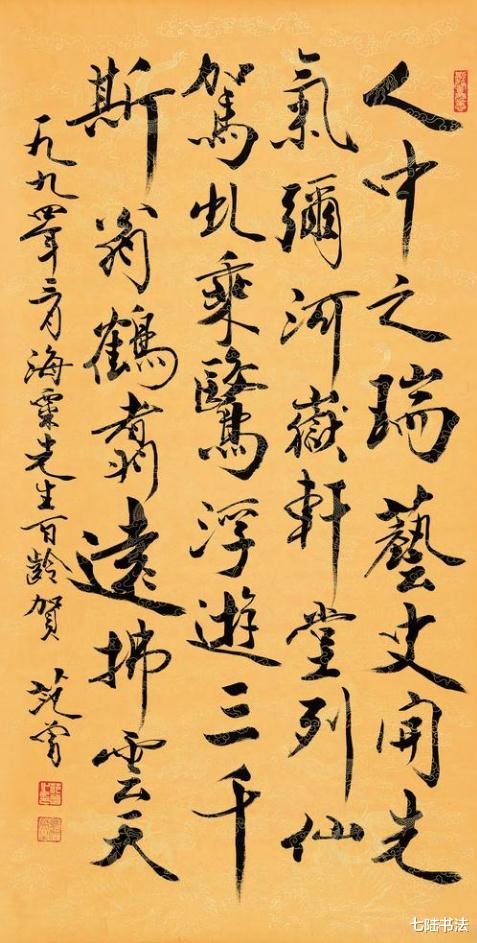 人中之瑞藝史開先
氣彌河嶽軒堂列仙
駕虬乘鷖浮遊三千
斯翁鶴翥遠拂雲天
一九九四年三月海粟先生百齡賀 范曾
七陆书法